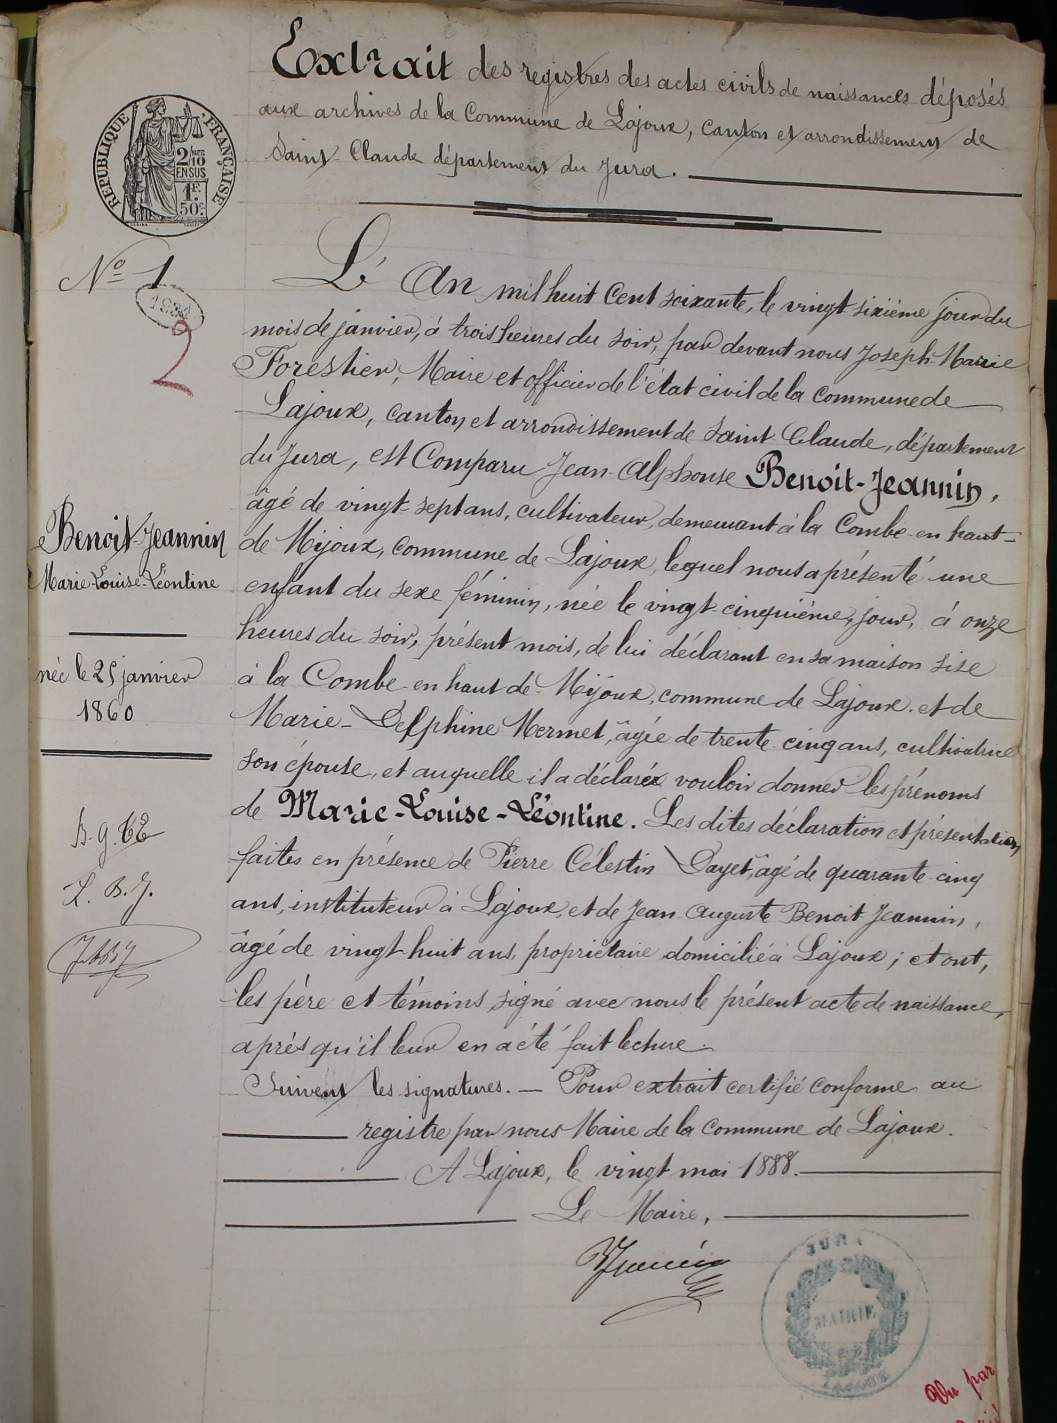 Extrait des registres des actes civils de naissances déposés
aux archives de la Commune de Lajoux, canton et arrondissement de
Saint-Claude département du Jura.
RÉPUBLIQUE FRANÇAISE
2/10
EN SUS
1F.
50c.
No 1
2
L'An mil huit Cent soixante, le vingt sixième jour du
mois de janvier, à trois heures du soir, par devant nous Joseph-Marie
Forestier, Maire et officier de l'état civil de la commune de
Lajoux, canton et arrondissement de Saint Claude, département
du Jura, est Comparu Jean-Alphonse Benoit-Jeannin,
âgé de vingt-sept ans, cultivateur, demeurant à la Combe-en haut-
de Mijoux, commune de Lajoux, lequel nous a présenté une
enfant du sexe féminin, née le vingt-cinquième, jour, à onze
heures du soir, présent mois, de lui déclarant en sa maison sise
à la Combe-en haut de-Mijoux, commune de Lajoux. et de
Marie-Delphine Mermet, âgée de trente cinq ans, cultivatrice
son épouse, et auquelle il a déclaré vouloir donner les prénoms
de Marie-Louise-Léontine. Les dites déclaration et présentation
faites en présence de Pierre Célestin Dayet, âgé de quarante-cinq
ans, instituteur à Lajoux, et de Jean-Auguste Benoit Jeannin,
âgé de vingt-huit ans, propriétaire domicilié à Lajoux; et ont,
les père et témoins, signé avec nous le présent acte de naissance,
après qu'il leur en a été fait lecture.
Suivent les signatures. — Pour extrait certifié conforme au
registre par nous Maire de la Commune de Lajoux.
A Lajoux, le vingt mai 1888.
Le Maire,
Benoit-Jeannin
Marie-Louise-Léontine
née le 25 janvier
1860
L. B. J.
JURA
MAIRIE
Vu par